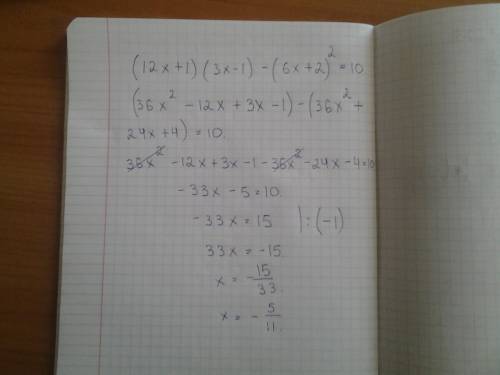 (12x+1)(3x-1)-(6x+2)²=10
(36x²-12x+3x-1)-(36x²+
24x+4)=10.
36x²-12x+3x-1-36x²-24x-4=10
-33x-5=10.
-33x=15 |:(-1)
33x=-15.
x=-15/33.
x=-5/11.